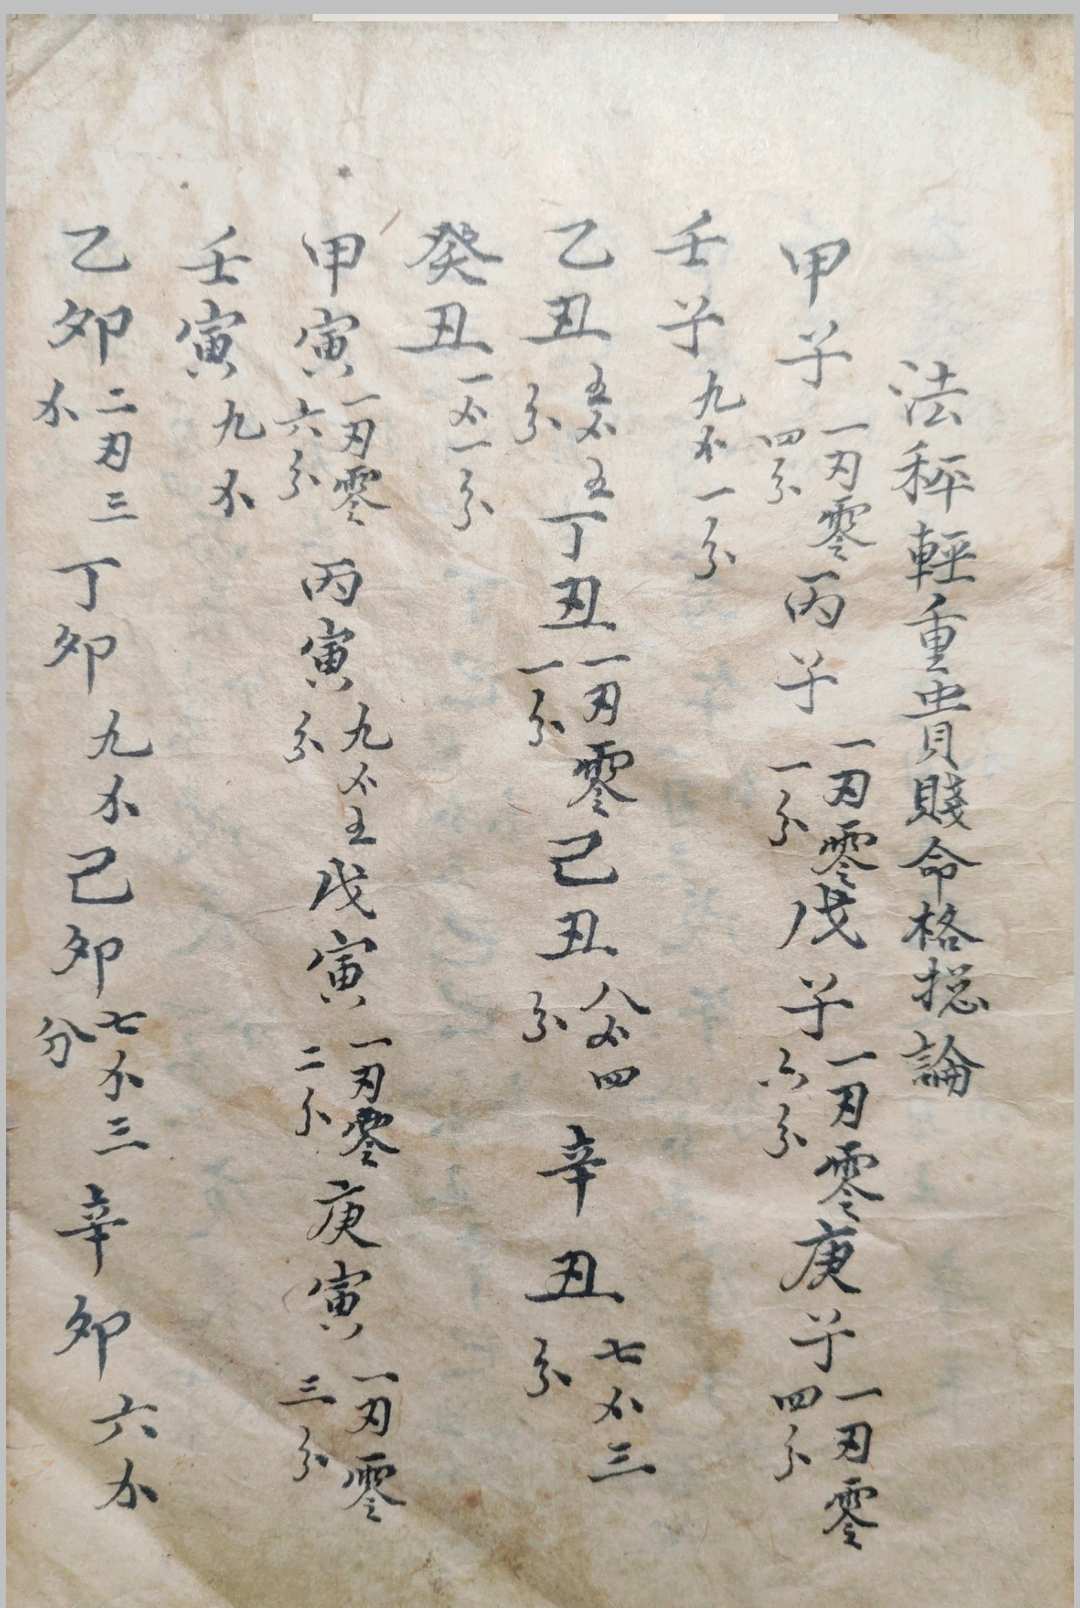 法秤輕重貴賤命格捴論
甲子一刄零四分丙子一刄零一分戊子一刄零六分庚子一刄零四分
壬子九不一分
乙丑五不五分丁丑一刄零一分己丑八不四分辛丑七不三分
癸丑一不一分
甲寅一刄零六分丙寅九不五分戊寅一刄零二分庚寅一刄零三分
壬寅九不
乙卯二刄三不丁卯九不己卯七不三分辛卯六不